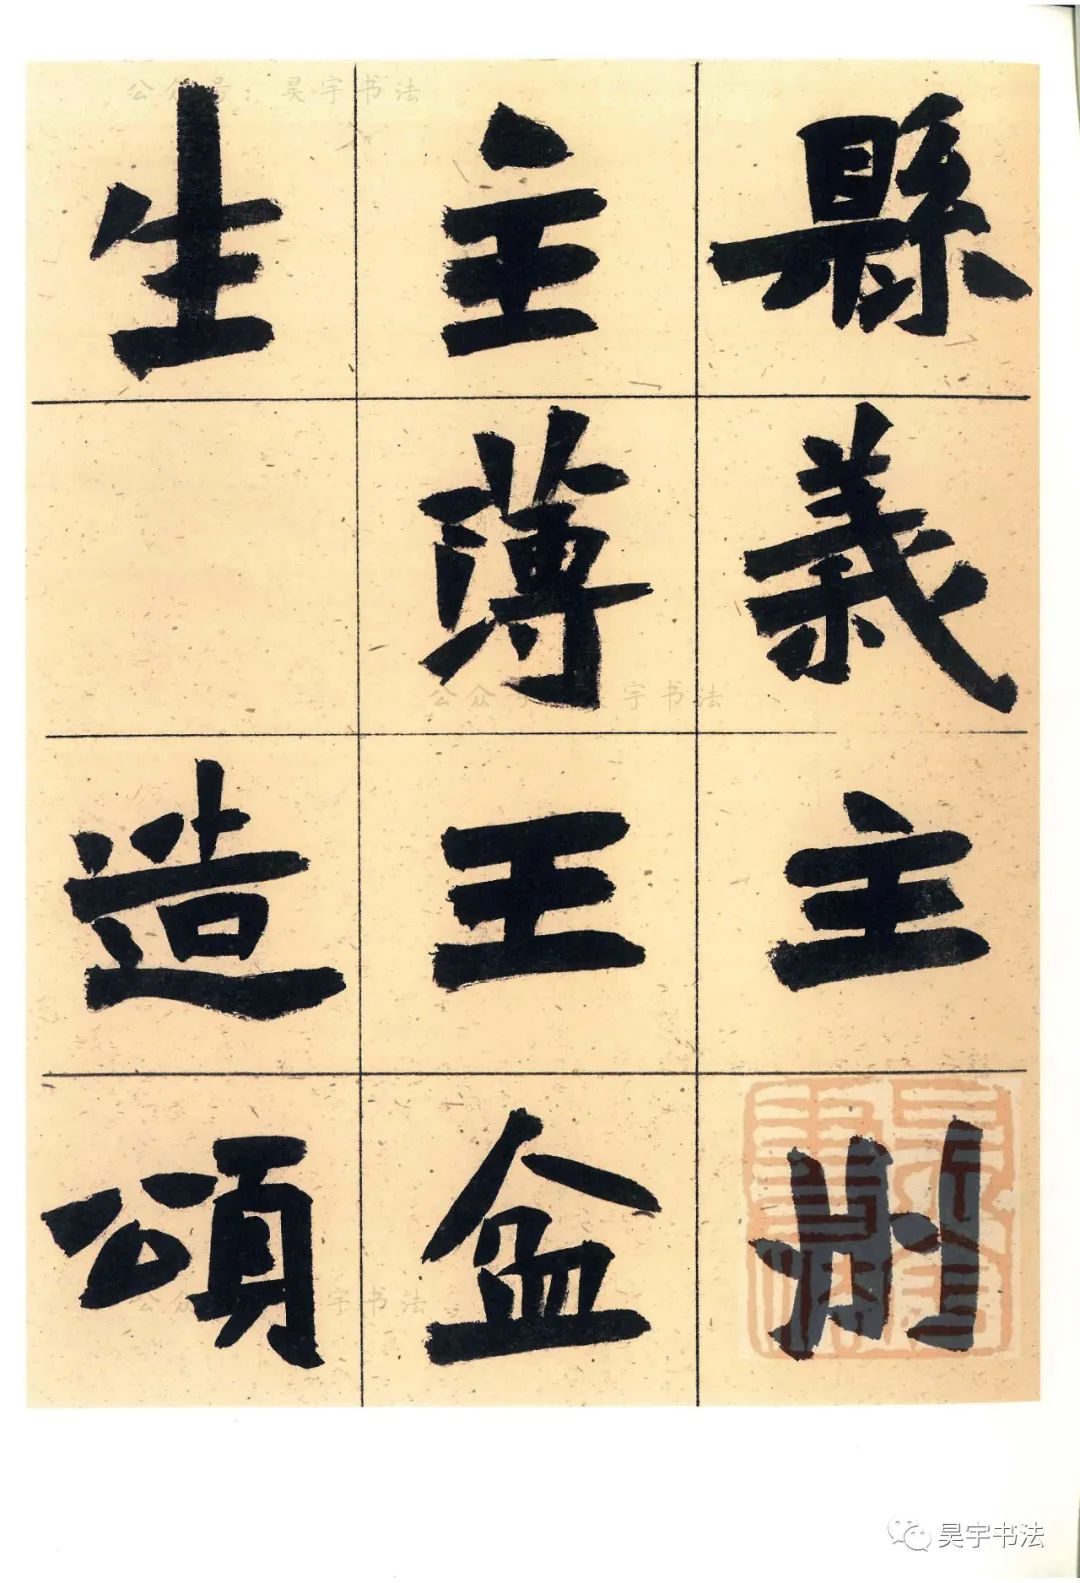 縣義主州
主薄王盆
生 造頌
公众号：昊宇书法
公众号：昊宇书法
公众号：昊宇书法
昊宇书法